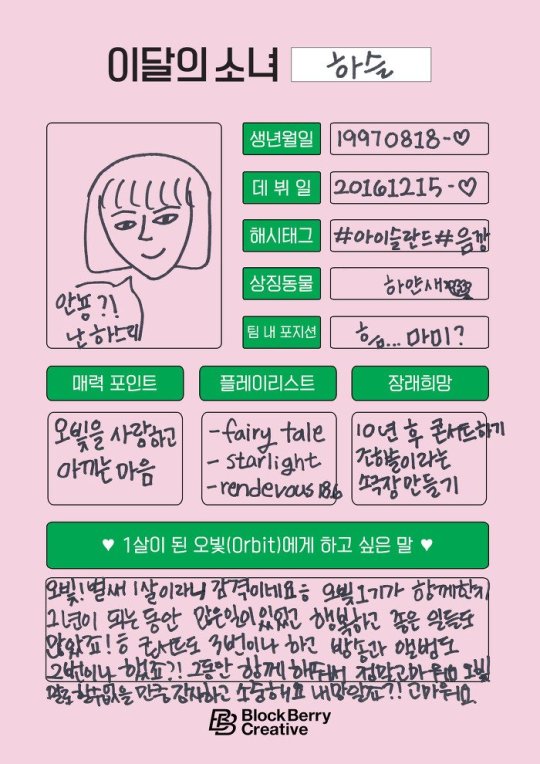 이달의 소녀 하슬
생년월일 19970818-♡
데뷔일 20161215-♡
해시태그 #아이슬란드#음깡
상징동물 하얀새
팀 내 포지션 흠... 마미?
안뇽?!
난 하스래
매력 포인트 플레이리스트 장래희망
오빛을 사랑하고
아끼는 마음
-fairy tale
- starlight
-rendevous 18.6
10년 후 콘서트하기
소극장 만들기
♥ 1살이 된 오빛(Orbit)에게 하고 싶은 말 ♥
오빛! 벌써 1살이라니 감격이네요ㅎ 오빛 1기가 함께한지
1년이 되는동안 많은일이 있었고 행복하고 좋은 일들도
많았죠!ㅎ 콘서트도 3번이나 하고 방송과 앨범도
2번이나 했죠?! 그동안 함께 해줘서 정말 고마워요 오빛
말로 할수없을 만큼 감사하고 소중해요 내맘알죠?! 고마워요
BlockBerry
Creative